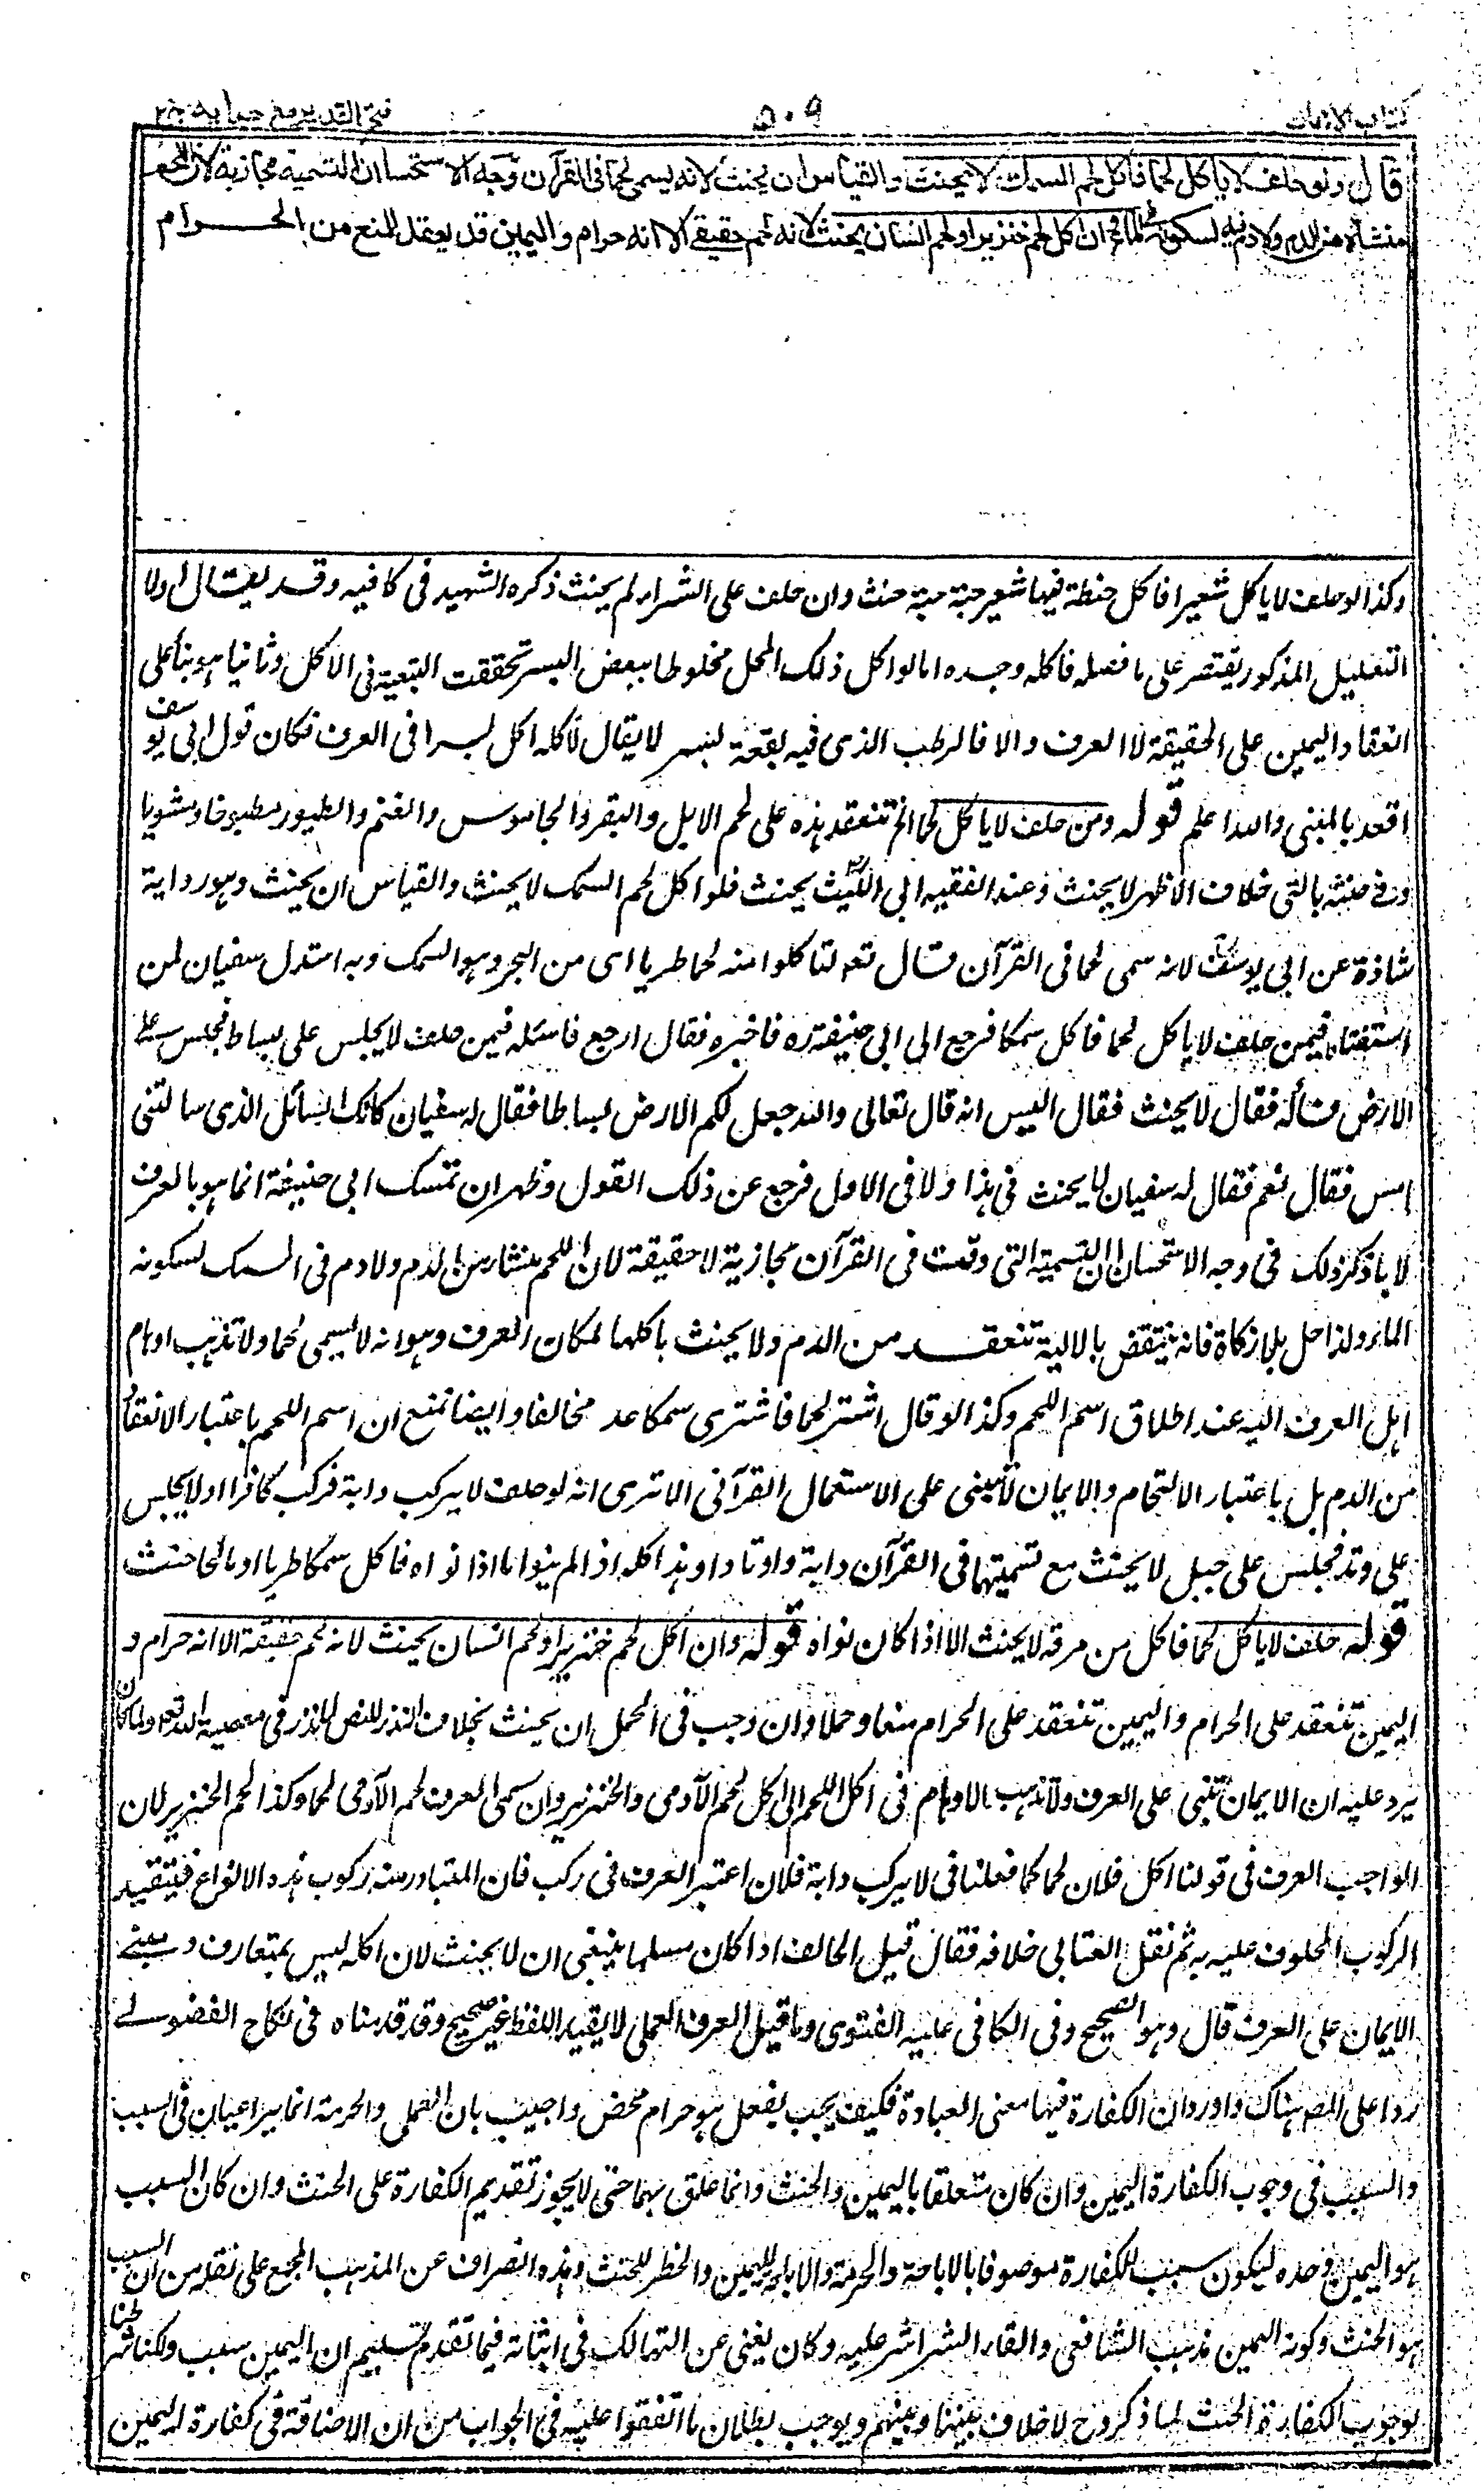 كتاب الايمان
٥٠٩
فتح القدير مع هداية ج ٢
قال ولو حلف لا ياكل لحما فاكل لحم السمك لا يحنث والقياس ان يحنث لانه يسمى لحما في القرآن وجه الاستحسان ان التسمية مجازية لان اللحم
منشاه من الدم ولا دم فيه لسكونه في الماء وان اكل لحم خنزير او لحم انسان يحنث لانه لحم حقيقي الا انه حرام واليمين قد يعقد للمنع من الحرام
وكذا لو حلف لا ياكل شعيرا فاكل حنطة فيها شعير حبة حبة حنث وان حلف على الشراء لم يحنث ذكره الشهيد في كافيه وقد يقال اولا
التعليل المذكور يقتصر على ما فصله فاكله وحده اما لو اكل ذلك المحل مخلوطا ببعض البسر تحققت التبعية في الاكل وثانيا هو بناء على
انعقاد اليمين على الحقيقة لا العرف والا فالرطب الذي فيه بقعة بسر لا يقال لآكله اكل بسرا في العرف فكان قول ابي يوسف
اقعد بالمبنى والله اعلم قوله ومن حلف لا ياكل لحما الخ تنعقد هذه على لحم الابل والبقر والجاموس والغنم والطيور مطبوخا ومشويا
وفي حنثه بالني خلاف الاظهر لا يحنث وعند الفقيه ابي الليث يحنث فلو اكل لحم السمك لا يحنث والقياس ان يحنث وهو رواية
شاذة عن ابي يوسف لانه سمى لحما في القرآن قال تعه لتاكلوا منه لحما طريا اى من البحر وهو السمك وبه استدل سفيان لمن
استفتاه فيمن حلف لا ياكل لحما فاكل سمكا فرجع الى ابي حنيفة ره فاخبره فقال ارجع فاسئله فيمن حلف لا يجلس على بساط فجلس على
الارض فسأله فقال لا يحنث فقال اليس انه قال تعالى والله جعل لكم الارض بساطا فقال له سفيان كانك السائل الذي سالتني
امس فقال نعم فقال له سفيان لا يحنث في هذا ولا في الاول فرجع عن ذلك القول وظهر ان تمسك ابي حنيفة انما هو بالعرف
لا بما ذكر ذلك في وجه الاستحسان ان التسمية التي وقعت في القرآن مجازية لا حقيقة لان اللحم منشاه من الدم ولا دم في السمك لسكونه
الماء ولذا حل بلا زكاة فانه ينتقض بالالية تنعقد من الدم ولا يحنث باكلها لمكان العرف وهو انه لا يسمى لحما ولا تذهب اوهام
اهل العرف اليه عند اطلاق اسم اللحم وكذا لو قال اشتر لحما فاشترى سمكا عد مخالفا وايضا نمنع ان اسم اللحم باعتبار الانعقاد
من الدم بل باعتبار الالتحام والايمان لا تبنى على الاستعمال القرآني الا ترى انه لو حلف لا يركب دابة فركب كافرا او لا يجلس
على وتد فجلس على جبل لا يحنث مع تسميتها في القرآن دابة واوتادا وهذا كله اذا لم ينو اما اذا نواه فاكل سمكا طريا او مالحا حنث
قوله حلف لا ياكل لحما فاكل من مرقه لا يحنث الا اذا كان نواه قوله وان اكل لحم خنزير او لحم انسان يحنث لانه لحم حقيقة الا انه حرام و
اليمين تنعقد على الحرام واليمين تنعقد على الحرام منعا وحملا وان وجب في المحمل ان يحنث بخلاف النذر للنص لا نذر في معصية الله تعه ولما كان
يرد عليه ان الايمان تبنى على العرف ولا تذهب الاوهام في اكل اللحم الى اكل لحم الآدمي والخنزير وان سمى العرف لحم الآدمي لحما وكذا لحم الخنزير لان
الواجب العرف في قولنا اكل فلان لحما كما فعلنا في لا يركب دابة فلان اعتبر العرف في ركب فان المتبادر منه ركوب هذه الانواع فيتقيد
الركوب المحلوف عليه به ثم نقل العتابي خلافه فقال قيل الحالف اذا كان مسلما ينبغي ان لا يحنث لان اكله ليس بمتعارف ومبنى
الايمان على العرف قال وهو الصحيح وفي الكافي عليه الفتوى وما قيل العرف العملي لا يقيد اللفظ غير صحيح وقد قدمناه في نكاح الفضولي
ردا على المص هناك واورد ان الكفارة فيها معنى العبادة فكيف يجب بفعل هو حرام محض واجيب بان الحل والحرمة انما يراعيان في السبب
والسبب في وجوب الكفارة اليمين وان كان متعلقا باليمين والحنث وانما علق بهما حتى لا يجوز تقديم الكفارة على الحنث وان كان السبب
هو اليمين وحده ليكون سبب الكفارة موصوفا بالاباحة والحرمة والاباحة لليمين والحظر للحنث وهذه انصراف عن المذهب المجمع على نقله من ان السبب
هو الحنث وكونه اليمين مذهب الشافعي والقاء الشراشر عليه وكان يغنى عن التهالك في اثباته فيما تقدم تسليم ان اليمين سبب ولكنا شرطنا
لوجوب الكفارة الحنث لما ذكر وح لا خلاف بيننا وبينهم ويوجب بطلان ما اتفقوا عليه في الجواب من ان الاضافة في كفارة اليمين